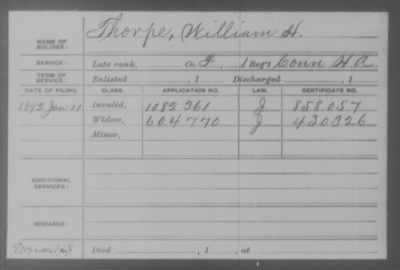 NAME OF SOLDIER: Thorpe, William H.
SERVICE: Late rank, Co. F, 1 Reg't Conn H A
TERM OF SERVICE: Enlisted , 1 Discharged , 1
DATE OF FILING. CLASS. APPLICATION NO. LAW. CERTIFICATE NO.
1892 Jan 11 Invalid, 1082361 J 858057
Widow, 604770 J 430326
Minor,
ADDITIONAL SERVICES:
REMARKS:
Died , 1 , at